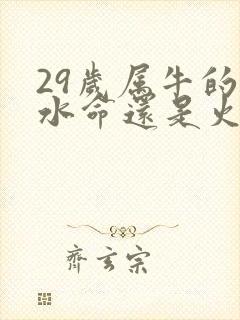 29歲属牛的
水命還是火
齊玄宗